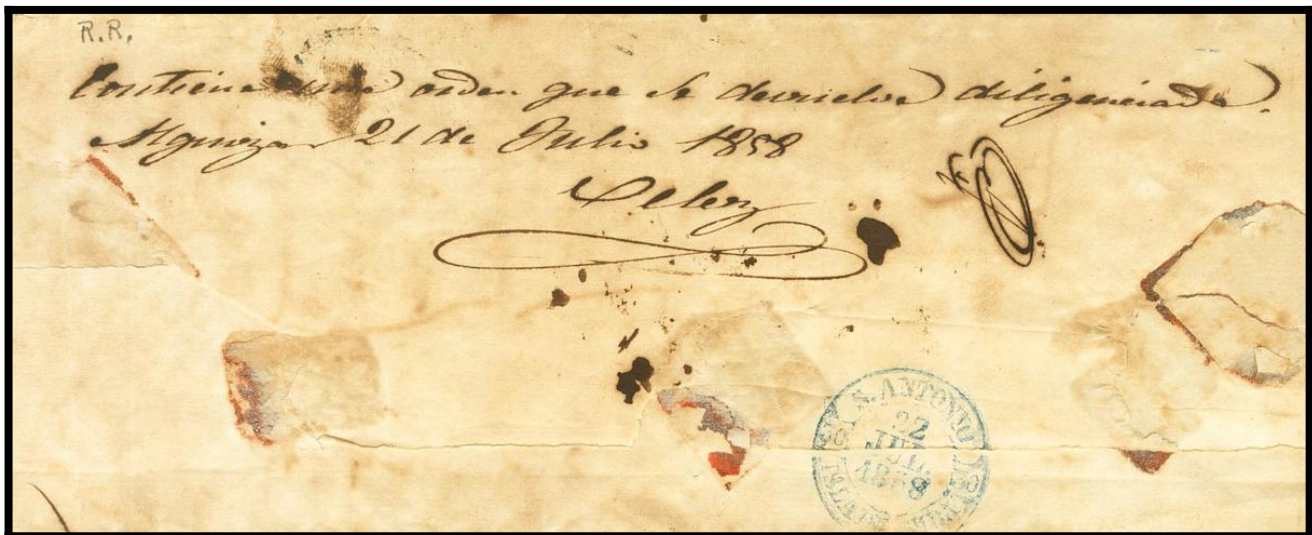 R.R.
Contiene una orden que se devuelve diligenciada.
Alquizar 21 de Julio 1858
S. ANTONIO
22
JUL.
1858